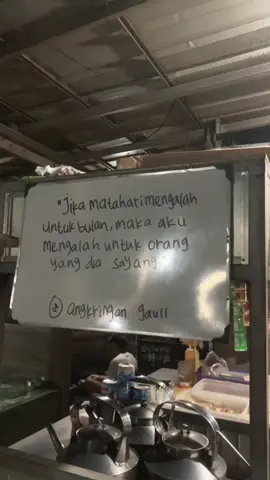 "Jika matahari mengalah
untuk bulan, maka aku
mengalah untuk orang
yang dia sayang"
angkringan gaull